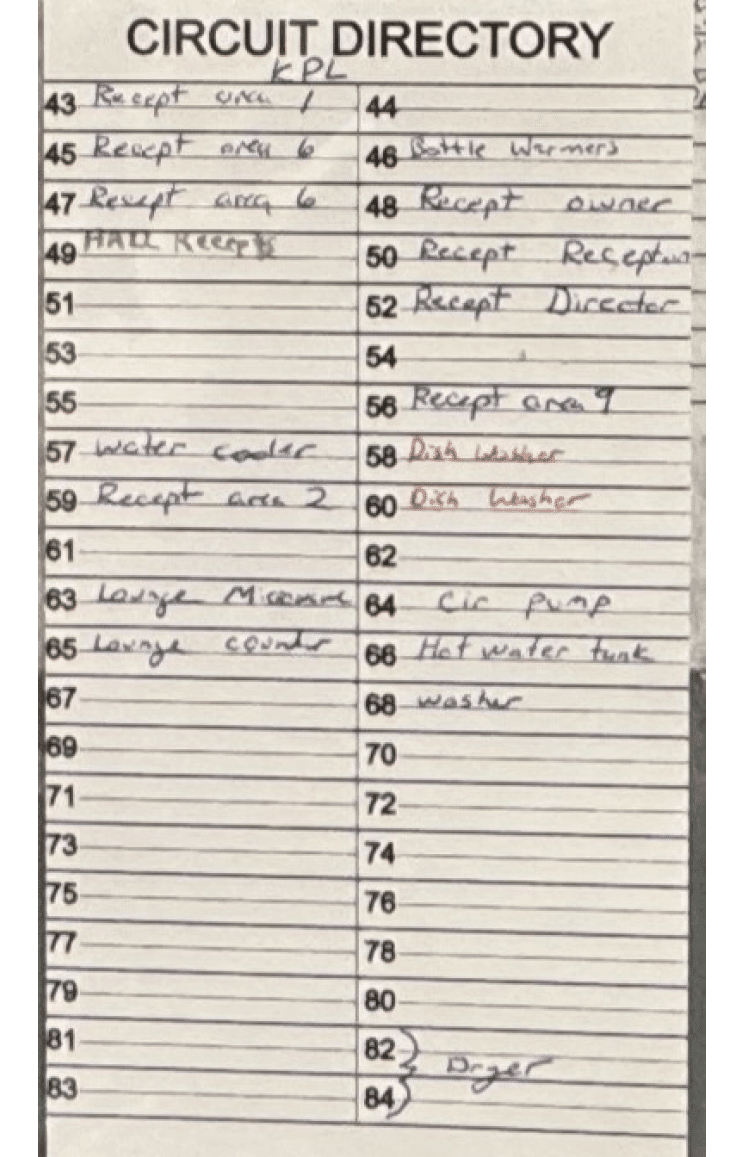 CIRCUIT DIRECTORY
KPL
43 Recept area 1 44
45 Recept area 6 46 Bottle Warmers
47 Recept area 6 48 Recept owner
49 HALL Recepts 50 Recept Reception
51 52 Recept Director
53 54
55 56 Recept area 9
57 water cooler 58 Dish Washer
59 Recept area 2 60 Dish Washer
61 62
63 Lounge Microwave 64 Cir pump
65 Lounge counter 66 Hot water tank
67 68 washer
69 70
71 72
73 74
75 76
77 78
79 80
81 82 Dryer
83 84